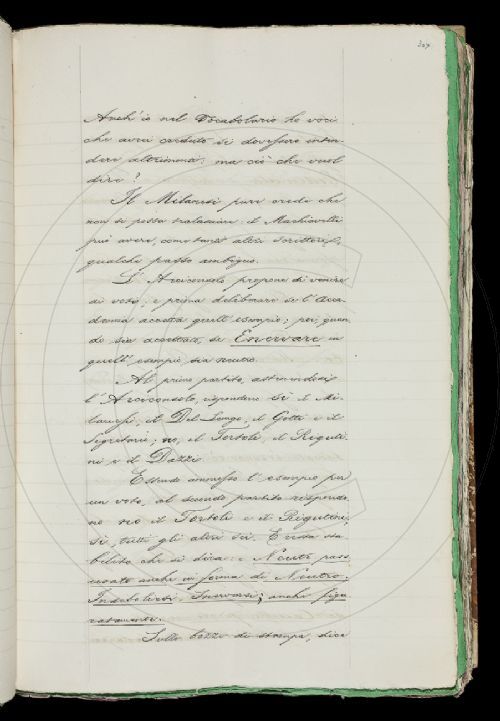 307
Anch'io nel Vocabolario ho voci
che avrei creduto si dovessero inten-
dere altrimenti: ma ciò che vuol
dire?
Il Milanesi pure crede che
non si possa tralasciare: il Machiavelli
può avere, come tanti altri scrittori,
qualche passo ambiguo.
L'Arciconsolo propone di venire
ai voti, e prima deliberare se l'Acca-
demia accetta quell'esempio; poi, quan-
do sia accettato, se Enervare in
quell'esempio sia neutro.
Al primo partito, astenendosi
l'Arciconsolo, rispondono sì il Mi-
lanesi, il Del Lungo, il Gotti e il
Segretario; no, il Tortoli, il Riguti-
ni e il Dazzi.
Essendo ammesso l'esempio per
un voto, al secondo partito rispondo-
no no il Tortoli e il Rigutini,
sì tutti gli altri. Resta sta-
bilito che si dica: Neutr. pass.
usato anche in forma di Neutro.
Indebolirsi, Snervarsi; anche figu-
ratamente.
Sulle bozze di stampa, dice